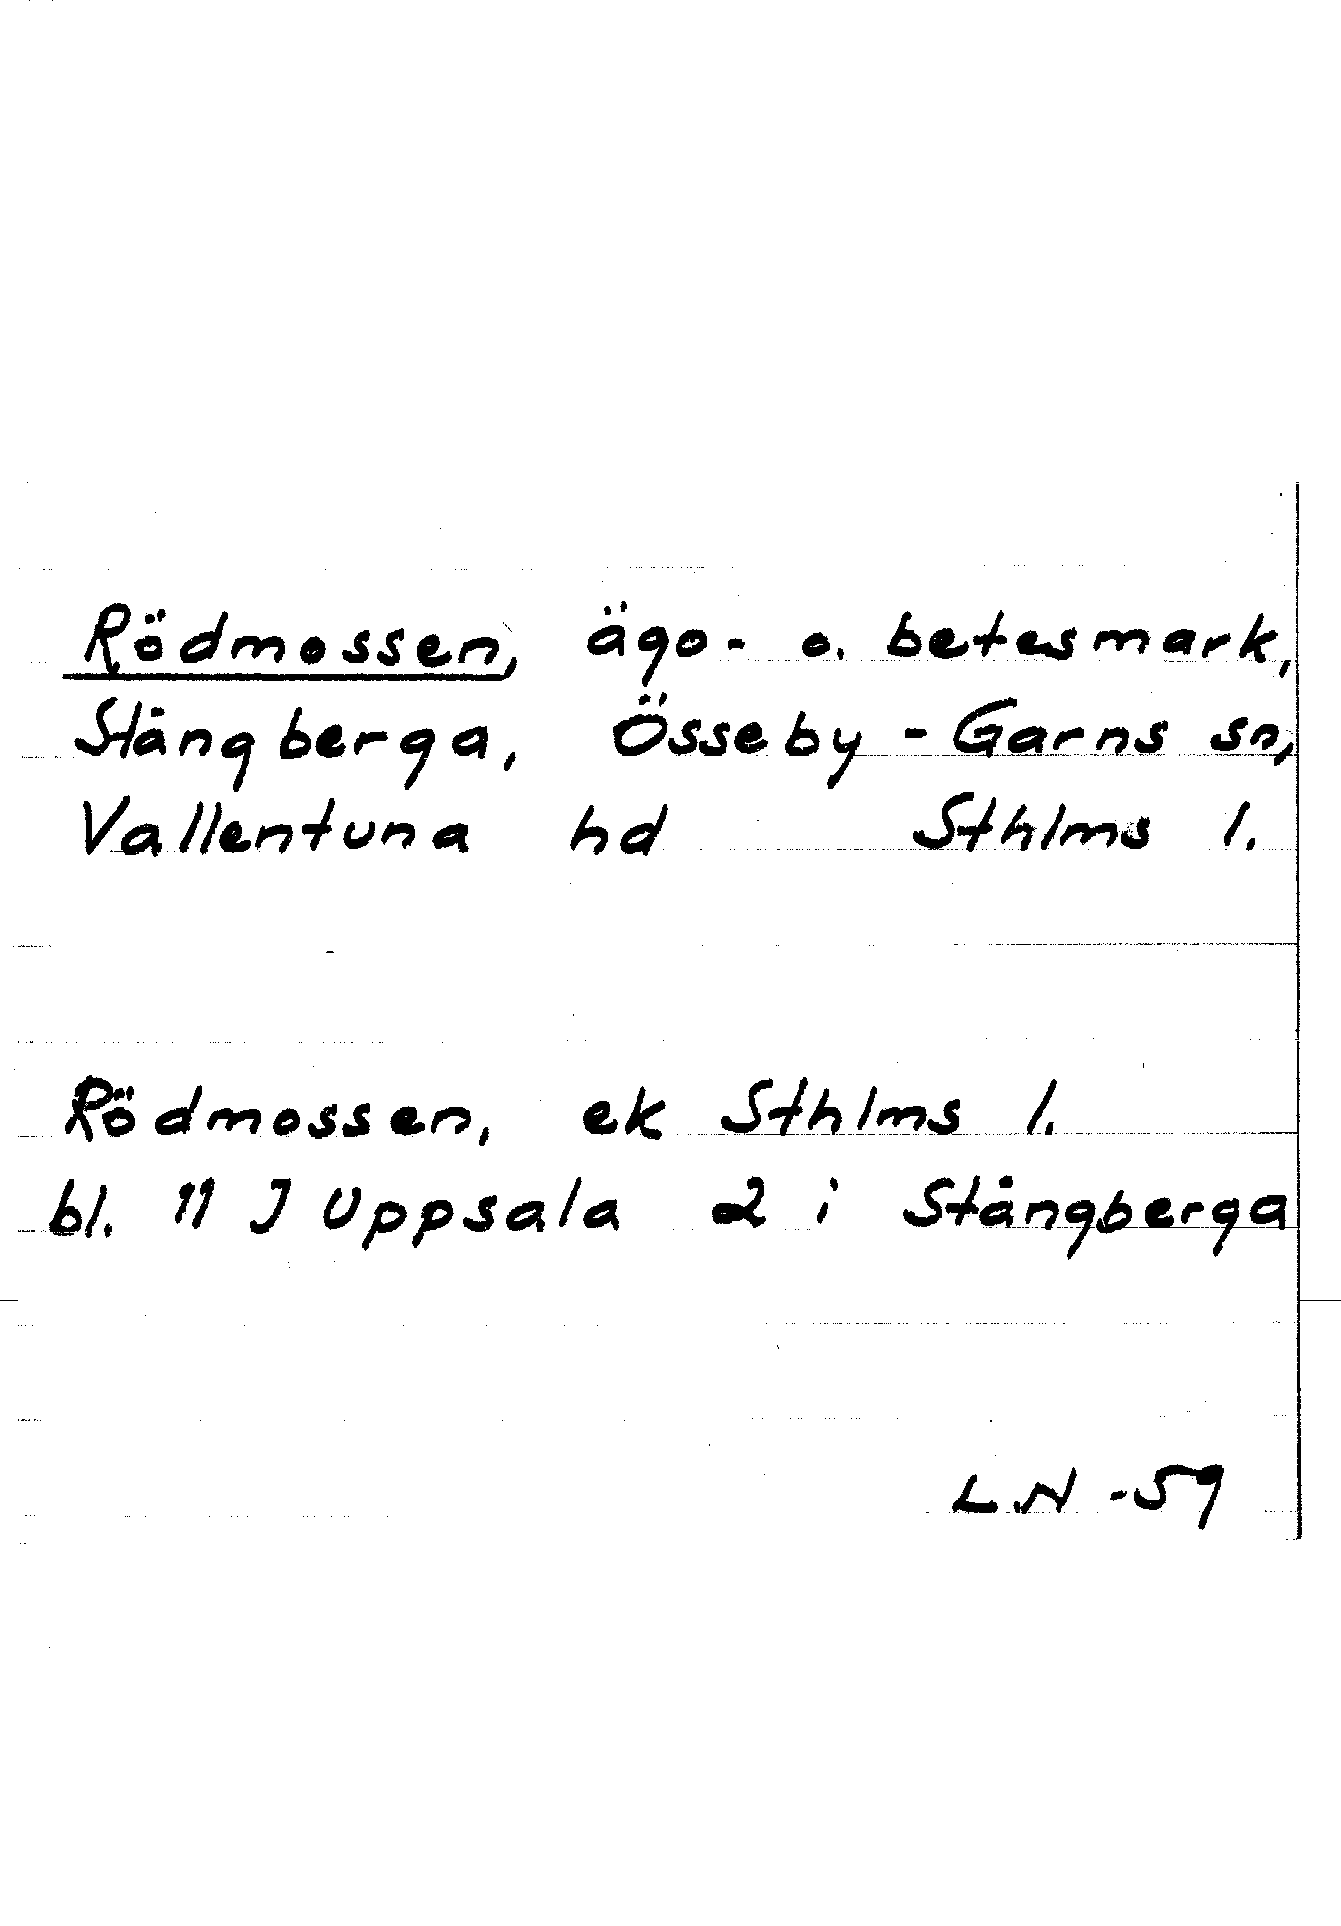 Rödmossen, ägo- o. betesmark,
Stångberga, Össeby-Garns sn,
Vallentuna hd Sthlms l.
Rödmossen, ek Sthlms l.
bl. 11 J Uppsala 2 i Stångberga
LN -59